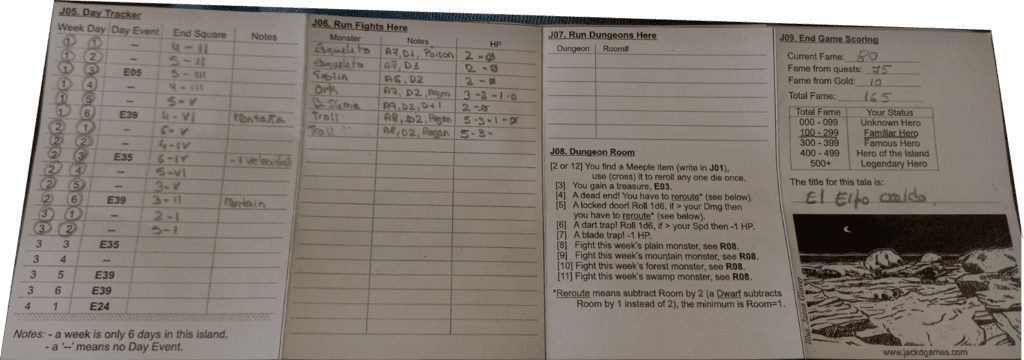 J05. Day Tracker
Week Day Day Event End Square Notes
1 1 – 4-II
1 2 – 5-II
1 3 E05 5-III
1 4 – 4-III
1 5 – 5-V
1 6 E39 4-VI Montaña
2 1 – 6-V
2 2 – 4-IV
2 3 E35 6-IV -1 velocidad
2 4 – 5-VI
2 5 – 3-V
2 6 E39 3-II Montain
3 1 – 2-I
3 2 – 5-I
3 3 E35
3 4 –
3 5 E39
3 6 E39
4 1 E24
Notes: - a week is only 6 days in this island.
- a '–' means no Day Event.
J06. Run Fights Here
Monster Notes HP
Esqueleto A7, D1, Poison 2-0
Esqueleto A7, D1 2-0
Goblin A6, D2 2-0
Ork A7, D2, Regen 3-2-1-0
A9, D2, D+1 2-0
Troll A8, D2, Regen 5-3-1-0
Troll A8, D2, Regen 5-3-
J07. Run Dungeons Here
Dungeon Room#
J08. Dungeon Room
[2 or 12] You find a Meeple item (write in J01),
use (cross) it to reroll any one die once.
[3] You gain a treasure, E03.
[4] A dead end! You have to reroute* (see below).
[5] A locked door! Roll 1d6, if > your Dmg then
you have to reroute* (see below).
[6] A dart trap! Roll 1d6, if > your Spd then -1 HP.
[7] A blade trap! -1 HP.
[8] Fight this week's plain monster, see R08.
[9] Fight this week's mountain monster, see R08.
[10] Fight this week's forest monster, see R08.
[11] Fight this week's swamp monster, see R08.
*Reroute means subtract Room by 2 (a Dwarf subtracts
Room by 1 instead of 2), the minimum is Room=1.
J09. End Game Scoring
Current Fame: 80
Fame from quests: 75
Fame from Gold: 10
Total Fame: 165
Total Fame Your Status
000 - 099 Unknown Hero
100 - 299 Familiar Hero
300 - 399 Famous Hero
400 - 499 Hero of the Island
500+ Legendary Hero
The title for this tale is:
El Elfo caido.
www.jackdgames.com